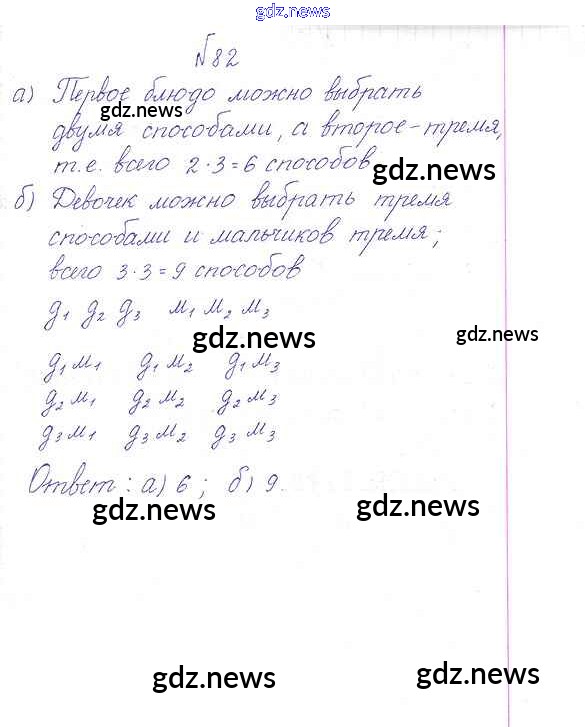 gdz.news
№82
а) Первое блюдо можно выбрать
gdz.news
двумя способами, а второе - тремя,
т.е. всего 2·3=6 способов
gdz.news
б) Девочек можно выбрать тремя
способами и мальчиков тремя;
всего 3·3=9 способов
д1 д2 д3 м1 м2 м3
gdz.news gdz.news
д1м1 д1м2 д1м3
д2м1 д2м2 д2м3
д3м1 д3м2 д3м3
Ответ: а) 6; б) 9.
gdz.news gdz.news
gdz.news gdz.news